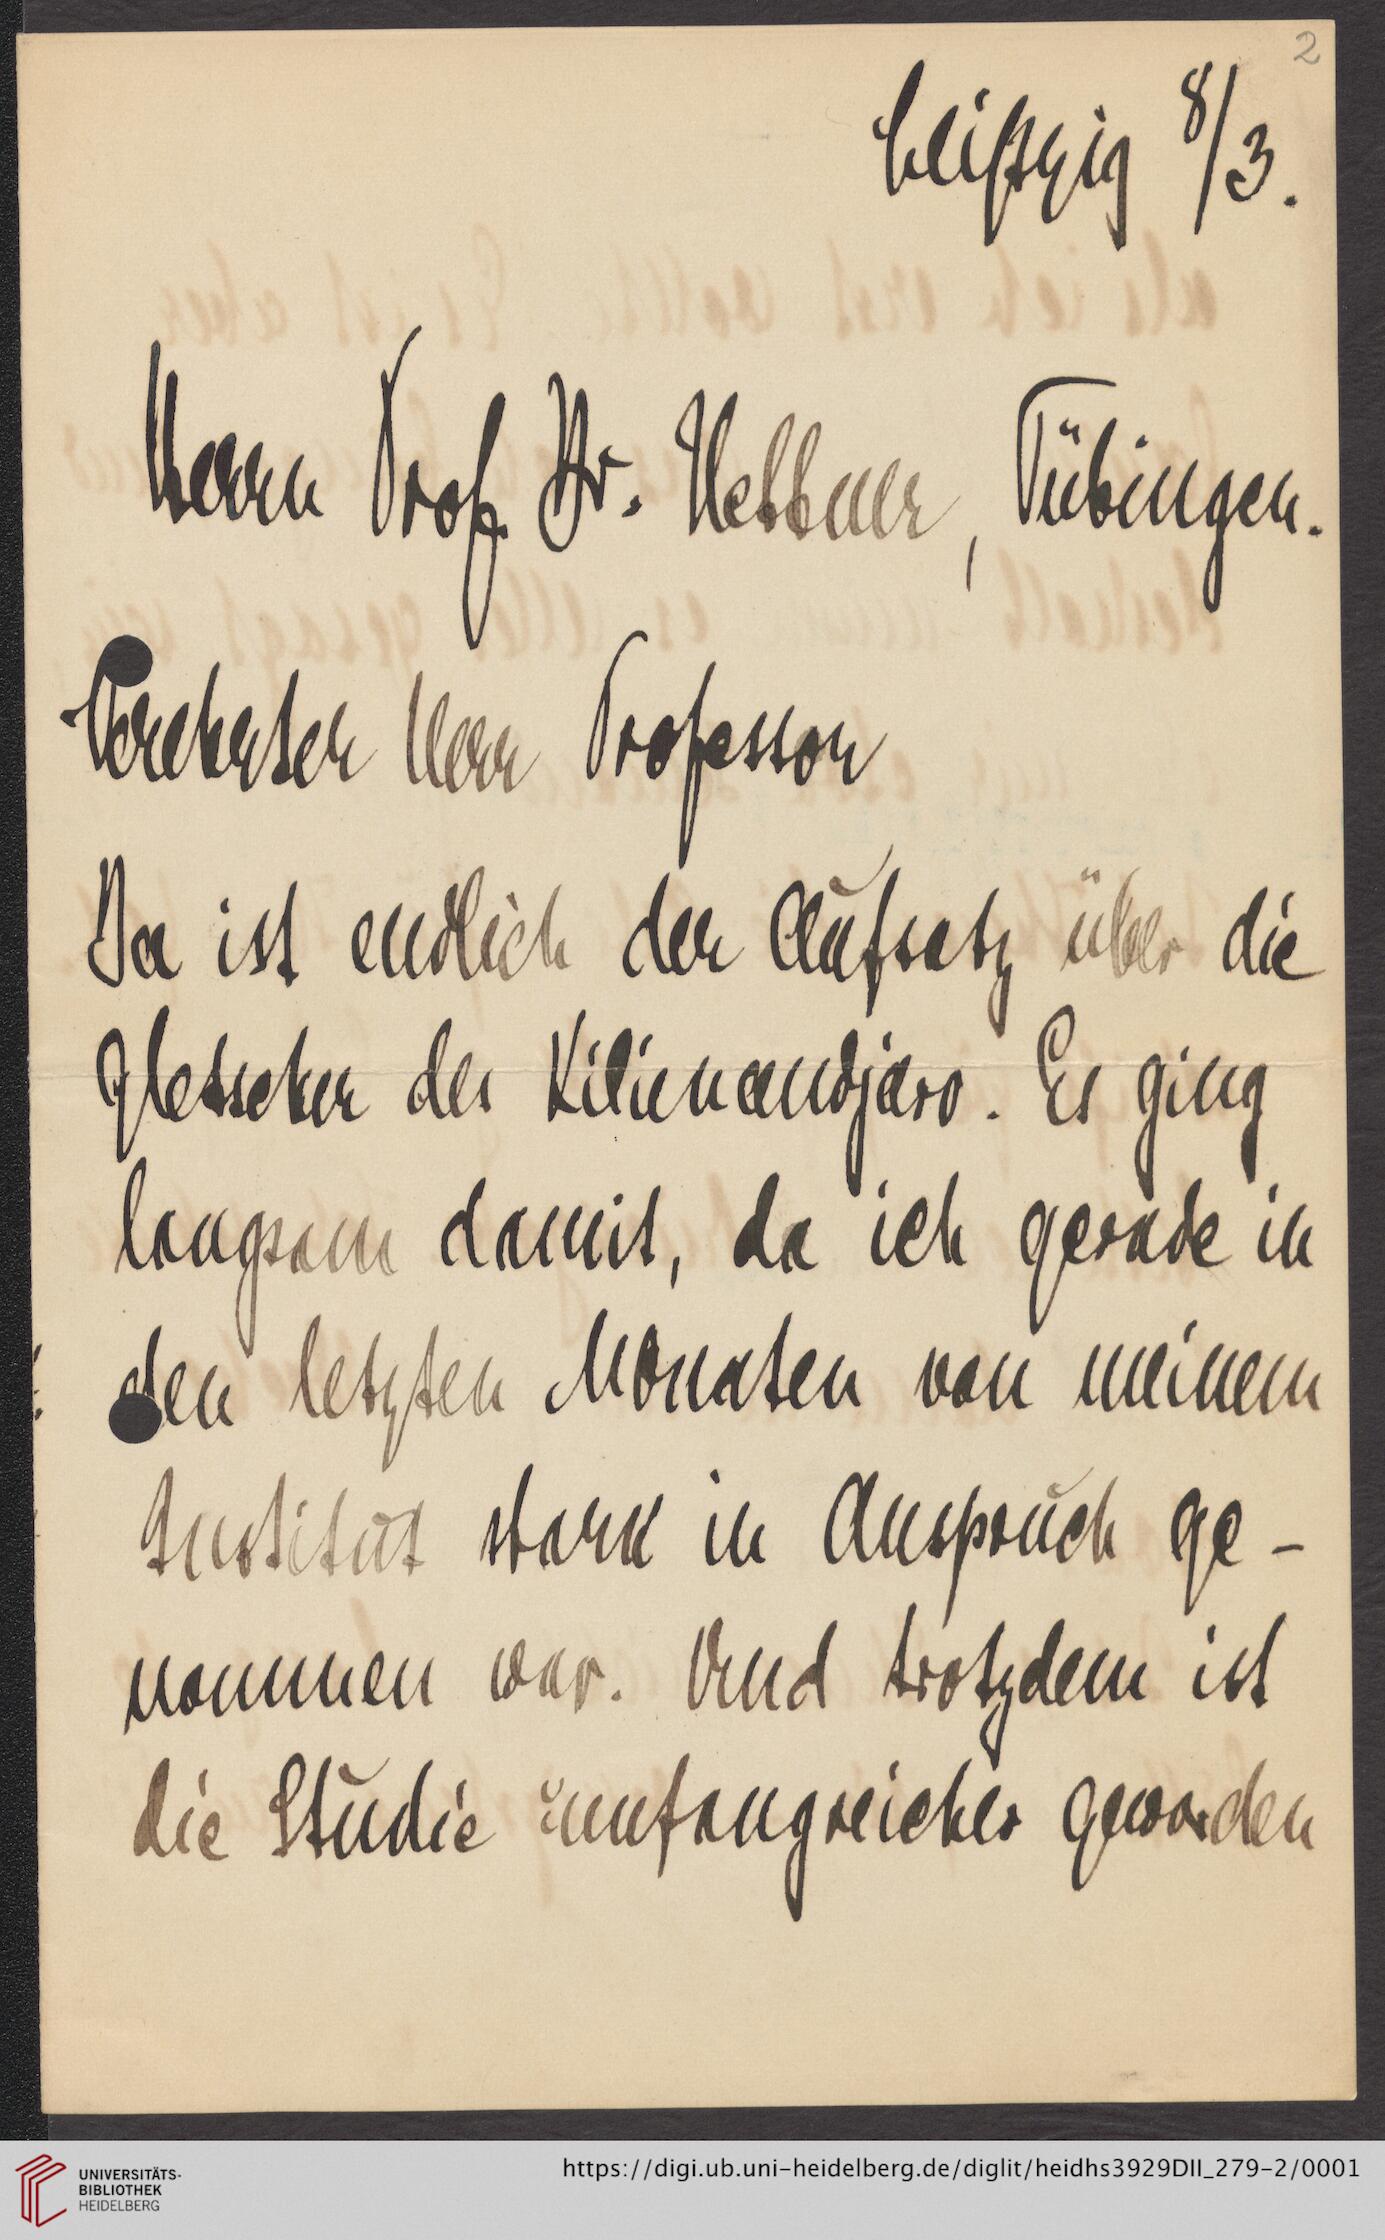 2
Leipzig 8/3.
Herrn Prof. Dr. Hettner, Tübingen.
Verehrter Herr Professor
Da ist endlich der Aufsatz über die
Gletscher des Kilimandjaro. Es ging
langsam damit, da ich gerade in
den letzten Monaten von meinem
Institut stark in Anspruch ge-
nommen war. Und trotzdem ist
die Studie umfangreicher geworden
UNIVERSITÄTS-
BIBLIOTHEK
HEIDELBERG
https://digi.ub.uni-heidelberg.de/diglit/heidhs3929DII_279-2/0001